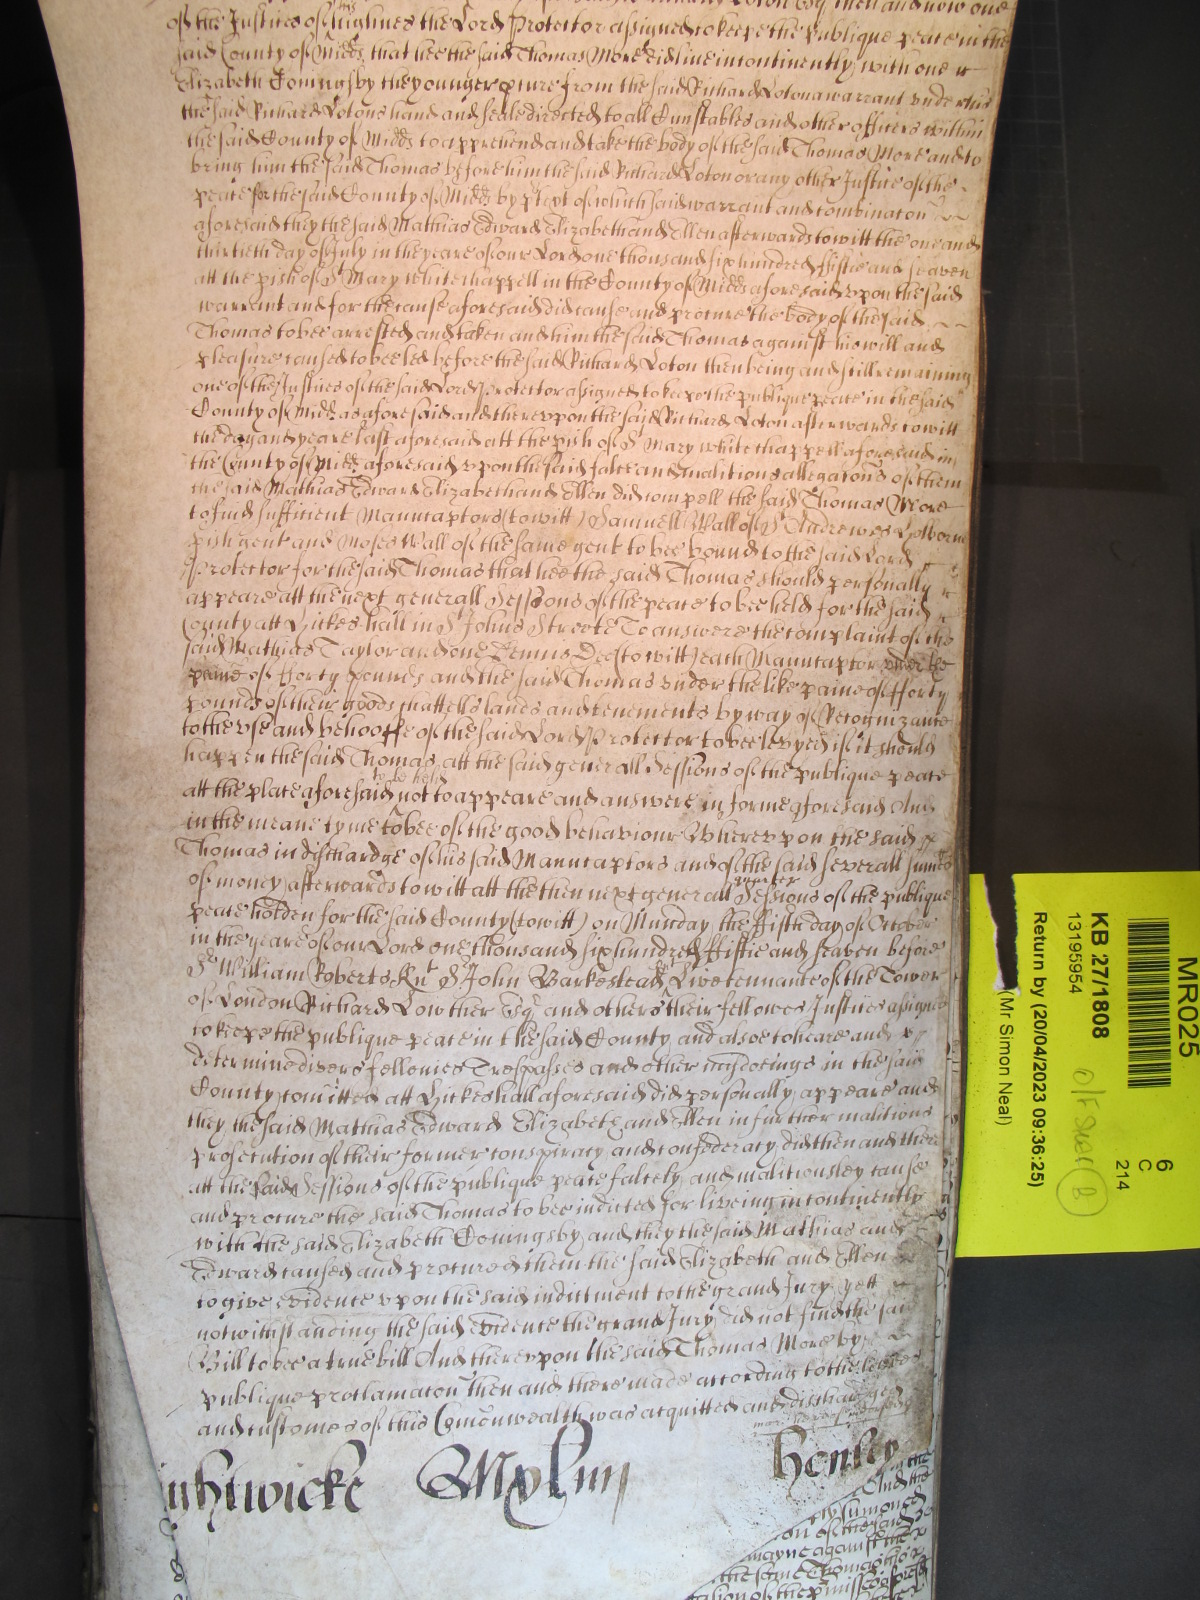 of the Justices of the Lord Protector assigned to keepe the publique peace in the
said County of Midds that hee the said Thomas More did live incontinently with one
Elizabeth Coningsby the younger pcure from the said Richard Loton a warrant under his
the said Richard Lotons hand and seale directed to all Cunstables and other officers within
the said County of Midds to apprehend and take the body of the said Thomas More and to
bring him the said Thomas before him the said Richard Loton or any other Justice of the
peace for the said County of Midds by ptext of which said warrant and combinacon
aforesaid they the said Mathias Edward Elizabeth and Ellen afterwards to witt the one and
thirtieth day of July in the yeare of our Lord one thousand six hundred fiftie and seaven
att the pish of St Mary Whitechappell in the County of Midds aforesaid upon the said
warrant and for the cause aforesaid did cause and procure the body of the said
Thomas to bee arrested and taken and him the said Thomas against his will and
pleasure caused to bee led before the said Richard Loton then being and still remaining
one of the Justices of the said Lord Protector assigned to keepe the publique peace in the said
County of Midds as aforesaid and thereupon the said Richard Loton afterwards to witt
the day and yeare last aforesaid att the pish of St Mary Whitechappell aforesaid in
the County of Midds aforesaid upon the said false and malitious allegacons of them
the said Mathias Edward Elizabeth and Ellen did compell the said Thomas More
to find sufficient Manucaptors (to witt) Samuell Wall of St Andrewes Holborne
pish gent and Moses Wall of the same gent to bee bound to the said Lord
Protector for the said Thomas that hee the said Thomas should personally
appeare att the next generall Sessions of the peace to bee held for the said
County att Hickes hall in St Johns Streete To answere the complaint of the
said Mathias Taylor and one Dennis Dee (to witt) each Manucaptor under the
paine of fforty pounds and the said Thomas under the like paine of fforty
pounds of their goods chattells lands and tenements by way of Recognizance
to the use and behooffe of the said Lord Protector to bee levyed if it should
happen the said Thomas att the said generall Sessions of the publique peace
to be held
att the place aforesaid not to appeare and answere in forme aforesaid And
in the meane tyme to bee of the good behaviour Whereupon the said
Thomas in dischardge of his said Manucaptors and of the said severall summes
quarter
of money afterwards to witt att the then next generall Sessions of the publique
peace holden for the said County (to witt) on Munday the ffifth day of October
in the yeare of our Lord one thousand six hundred ffiftie and seaven before
Sr William Roberts Knt Sr John Barkestead Knt Livetennante of the Tower
of London Richard Lowther Esq and others their fellowes Justices assigned
to keepe the publique peace in the said County and alsoe to heare and
determine divers fellonies Trespasses and other misdoeings in the said
County comitted att Hickeshall aforesaid did personally appeare and
they the said Mathias Edward Elizabeth and Ellen in further malitious
prosecution of their former conspiracy and confederacy did then and there
att the said Sessions of the publique peace falsely and malitiousley cause
and procure the said Thomas to bee indicted for liveing incontinently
with the said Elizabeth Coningsby and they the said Mathias and
Edward caused and procured them the said Elizabeth and Ellen
to give evidence upon the said indictment to the grand Jury yett
notwithstanding the said Evidence the grand Jury did not find the said
Bill to bee a true bill And thereupon the said Thomas More by
publique proclamacon then and there made according to the lawes
and customes of this Comonwealth was acquitted and dischardged
Mylun
Henley
in the
And the
sumoned
on of the said
mayne against the
the same Thomas hee
of the pmisses
MR025
6
C
214
KB 27/1808
13195954
Return by (20/04/2023 09:36:25)
(Mr Simon Neal)
B